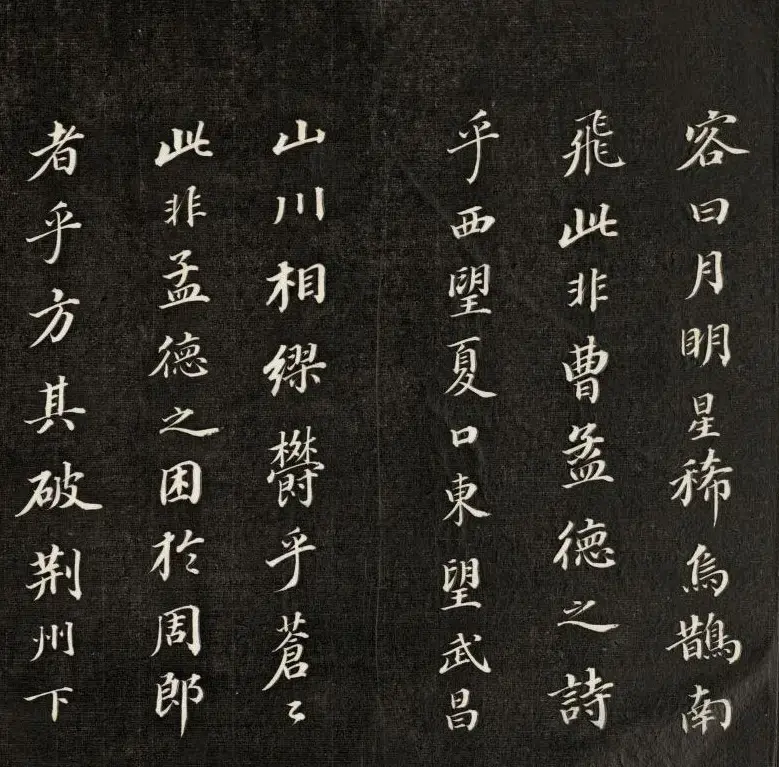 客曰月明星稀烏鵲南
飛此非曹孟德之詩
乎西望夏口東望武昌
山川相繆欝乎蒼〻
此非孟德之困於周郎
者乎方其破荊州下